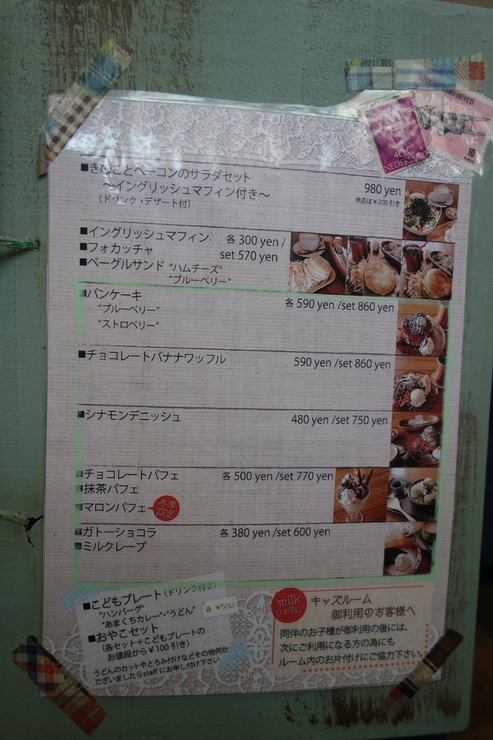 ■きのことベーコンのサラダセット
～イングリッシュマフィン付き～
(ドリンク・デザート付)
980 yen
単品は¥200引き
■イングリッシュマフィン
■フォカッチャ
■ベーグルサンド "ハムチーズ"
"ブルーベリー"
各 300 yen /
set 570 yen
■パンケーキ
"ブルーベリー"
"ストロベリー"
各 590 yen /set 860 yen
■チョコレートバナナワッフル
590 yen /set 860 yen
■シナモンデニッシュ
480 yen /set 750 yen
■チョコレートパフェ
■抹茶パフェ
■マロンパフェ
冬季
限定
各 500 yen /set 770 yen
■ガトーショコラ
■ミルクレープ
各 380 yen /set 600 yen
■こどもプレート(ドリンク付き)
"ハンバーグ"
"あまくちカレー"・"うどん"
各 ¥500
■おやこセット
(各セット+こどもプレートの
お値段から¥100引き)
うどんのカットやとろみ付けなどその他何か
ございましたらstaffにお申し付け下さい
milk
キッズルーム
御利用のお客様へ
同伴のお子様が御利用の後には、
次にご利用になる方の為にも
ルーム内のお片付けにご協力下さい